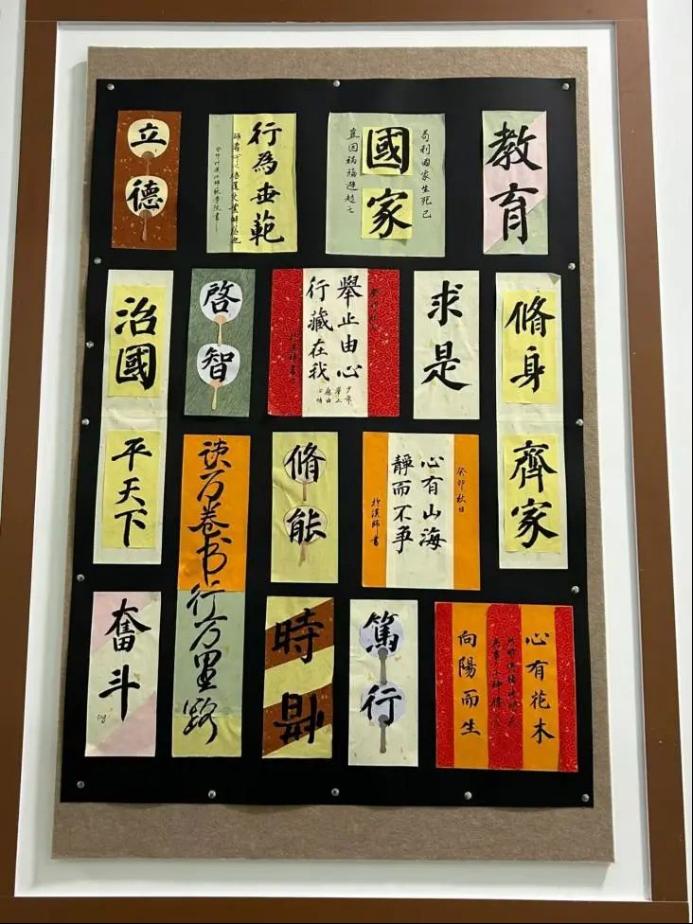 教育
國家
苟利国家生死已
豈因禍福避趋之
行為世範
立德
脩身
齊家
求是
舉止由心
行藏在我
啓智
治國
平天下
心有山海
靜而不爭
癸卯秋日
脩能
读万卷书
行万里路
心有花木
向陽而生
篤行
時
奮斗